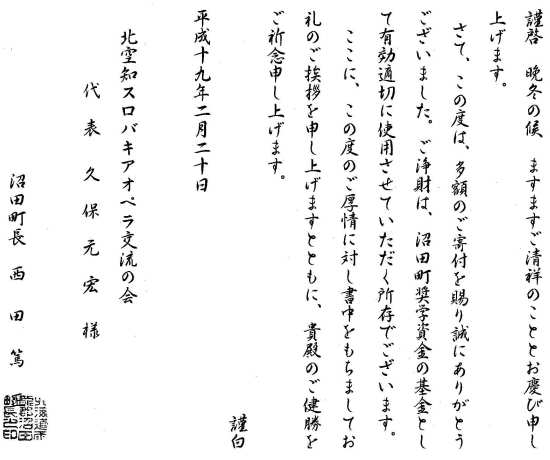 謹啓　晩冬の候　ますますご清祥のこととお慶び申し
上げます。
さて、この度は、多額のご寄付を賜り誠にありがとう
ございました。ご浄財は、沼田町奨学資金の基金とし
て有効適切に使用させていただく所存でございます。
ここに、この度のご厚情に対し書中をもちましてお
礼のご挨拶を申し上げますとともに、貴殿のご健勝を
ご祈念申し上げます。
謹白
平成十九年二月二十日
北空知スロバキアオペラ交流の会
代表　久保元宏　様
沼田町長　西田　篤